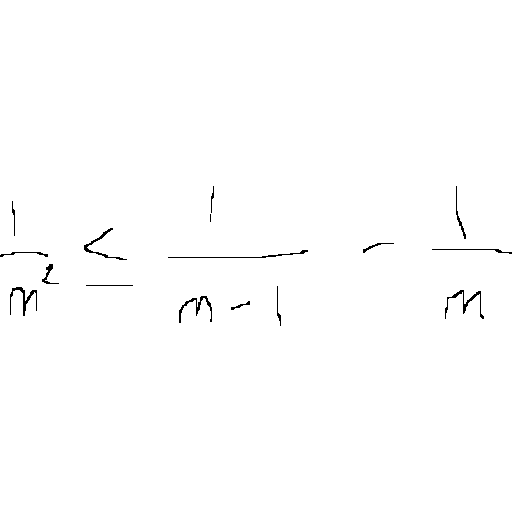 \frac{1}{m^2} \leq \frac{1}{m-1} - \frac{1}{m}